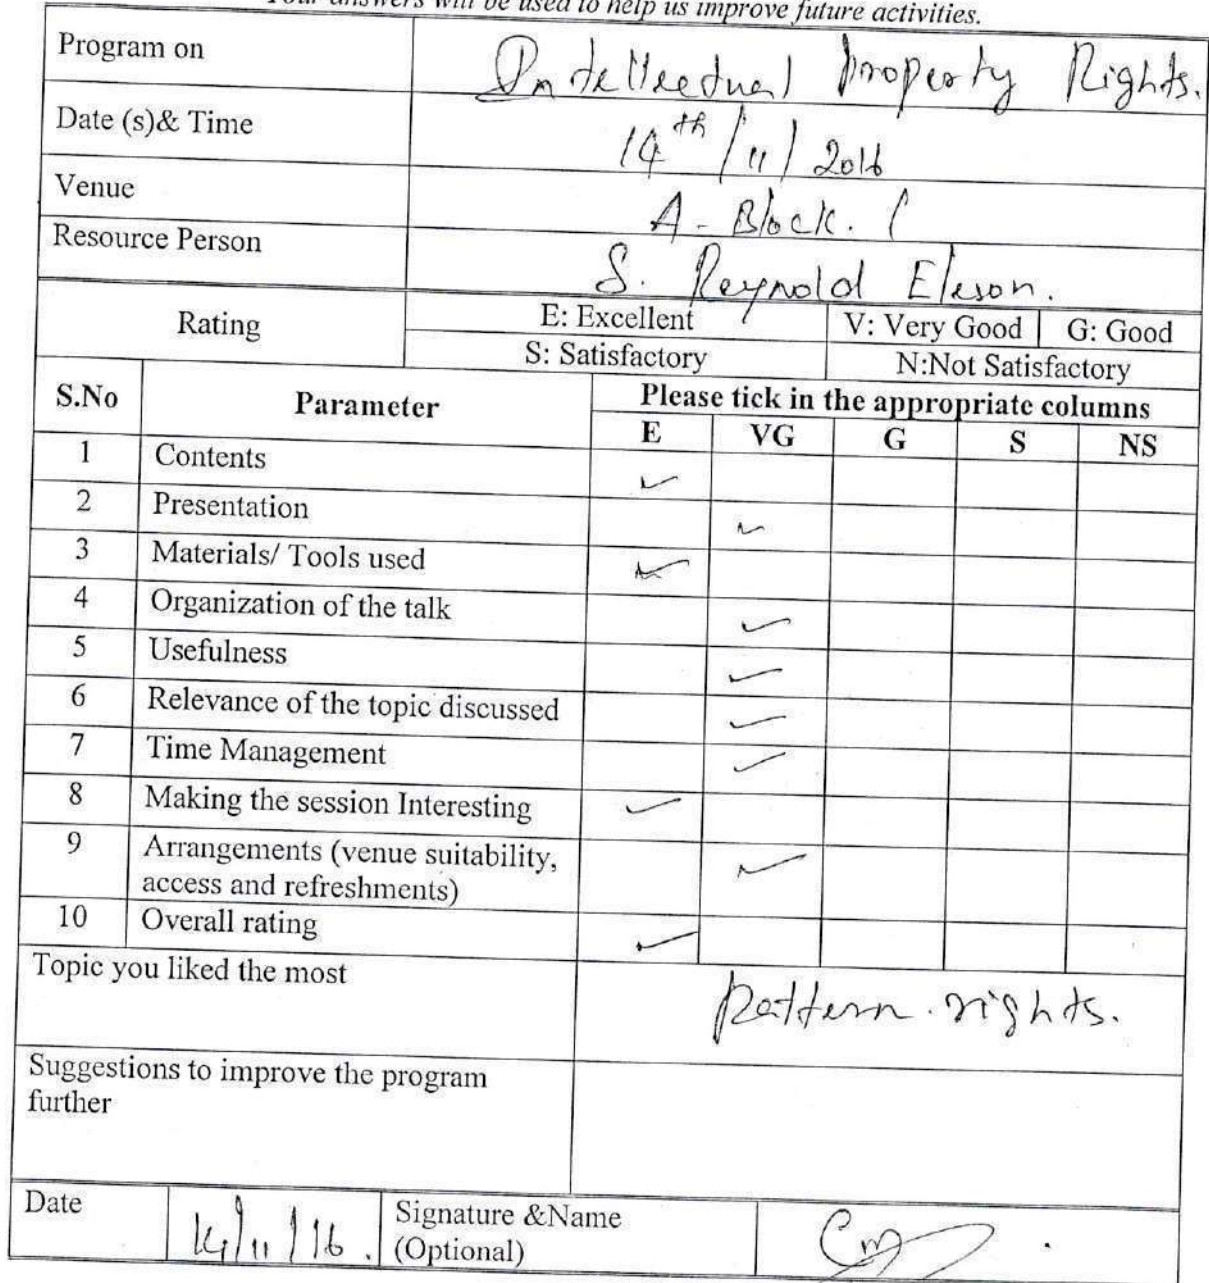 Your answers will be used to help us improve future activities.
Program on Intellectual Property Rights.
Date (s)& Time 14th/11/2016
Venue A-Block. (
Resource Person S. Reynold Eleson.
Rating E: Excellent V: Very Good G: Good
S: Satisfactory N:Not Satisfactory
S.No Parameter Please tick in the appropriate columns
E VG G S NS
1 Contents ✓
2 Presentation ✓
3 Materials/ Tools used ✓
4 Organization of the talk ✓
5 Usefulness ✓
6 Relevance of the topic discussed ✓
7 Time Management ✓
8 Making the session Interesting ✓
9 Arrangements (venue suitability, ✓
access and refreshments)
10 Overall rating ✓
Topic you liked the most pattern rights.
Suggestions to improve the program
further
Date 14/11/16. Signature &Name
(Optional)